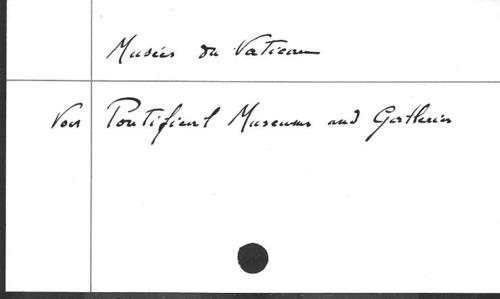 Musées du Vatican
Voir Pontifical Museums and Galleries